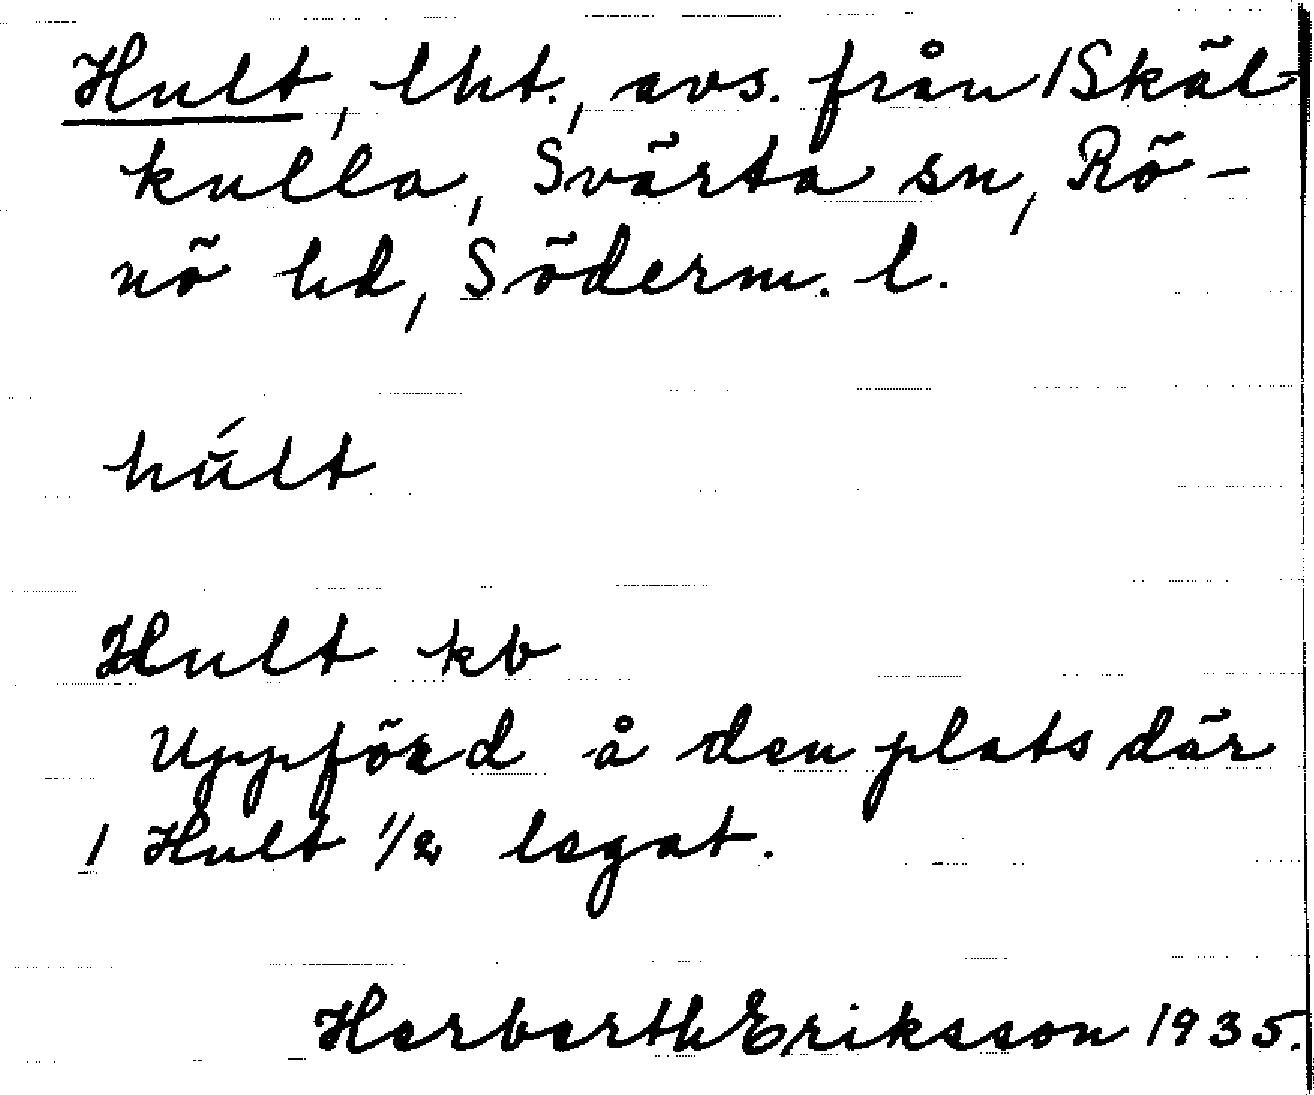 Hult, lht., avs. från 1 Skäl-
kulla, Svärta sn, Rö-
nö hd, Söderm. l.
húlt
Hult kb
Uppförd å den plats där
1 Hult 1/2 legat.
Herberth Eriksson 1935.